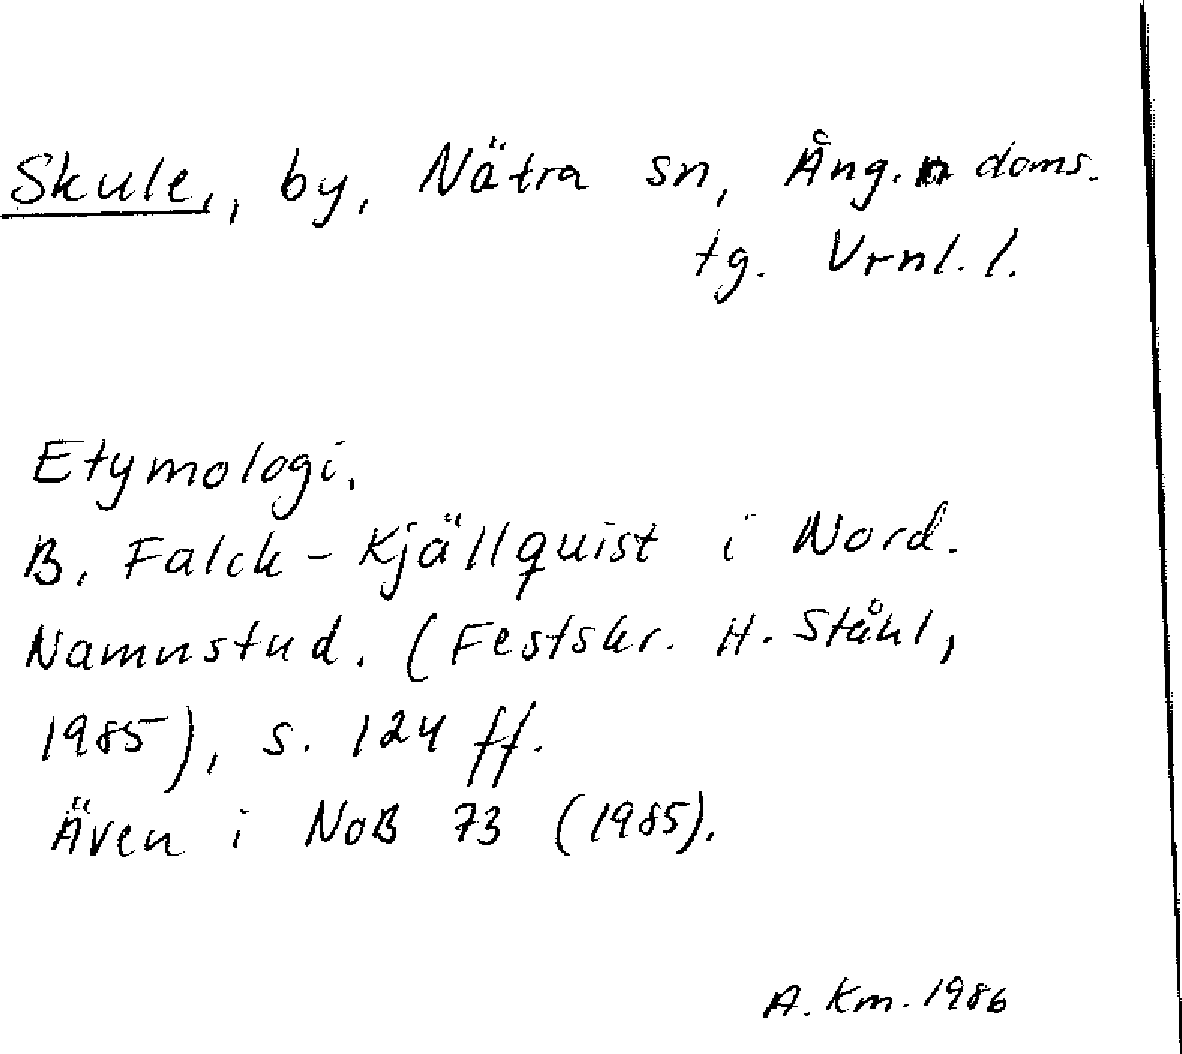 Skule,, by, Nätra sn, Ång. n doms.
tg. Vrnl. l.
Etymologi.
B. Falck-Kjällquist i Nord.
Namnstud. (Festskr. H. Ståhl,
1985), s. 124 ff.
Även i NoB 73 (1985).
A. Km. 1986